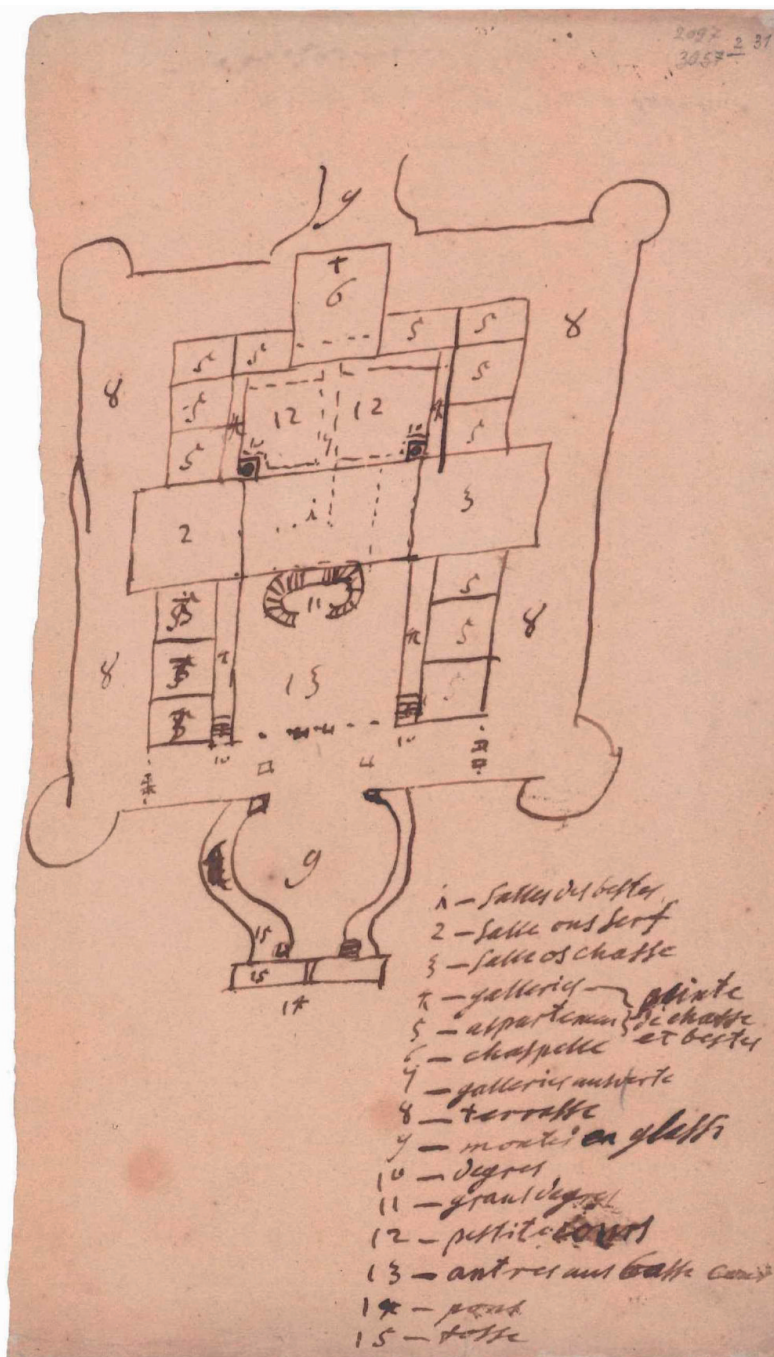 2097
3057 2 31
9
6
5 5 5 5
8 8
5 12 12 5
5 5
10 7 10
2 i 3
11
5 5
8 8
5 13 5
5 5
10 10
9
15
15
14
i – salles des bestes
2 – salle ous serf
3 – salle os chasse
4 – galleries
5 – aspartemens
peinte
de chasse
et bestes
6 – chaspelle
7 – galleries ausverte
8 – terrasse
9 – montei en glassi
10 – degres
11 – grans degres
12 – pestite cours
13 – antres aus basse cour
14 – pons
15 – fosse